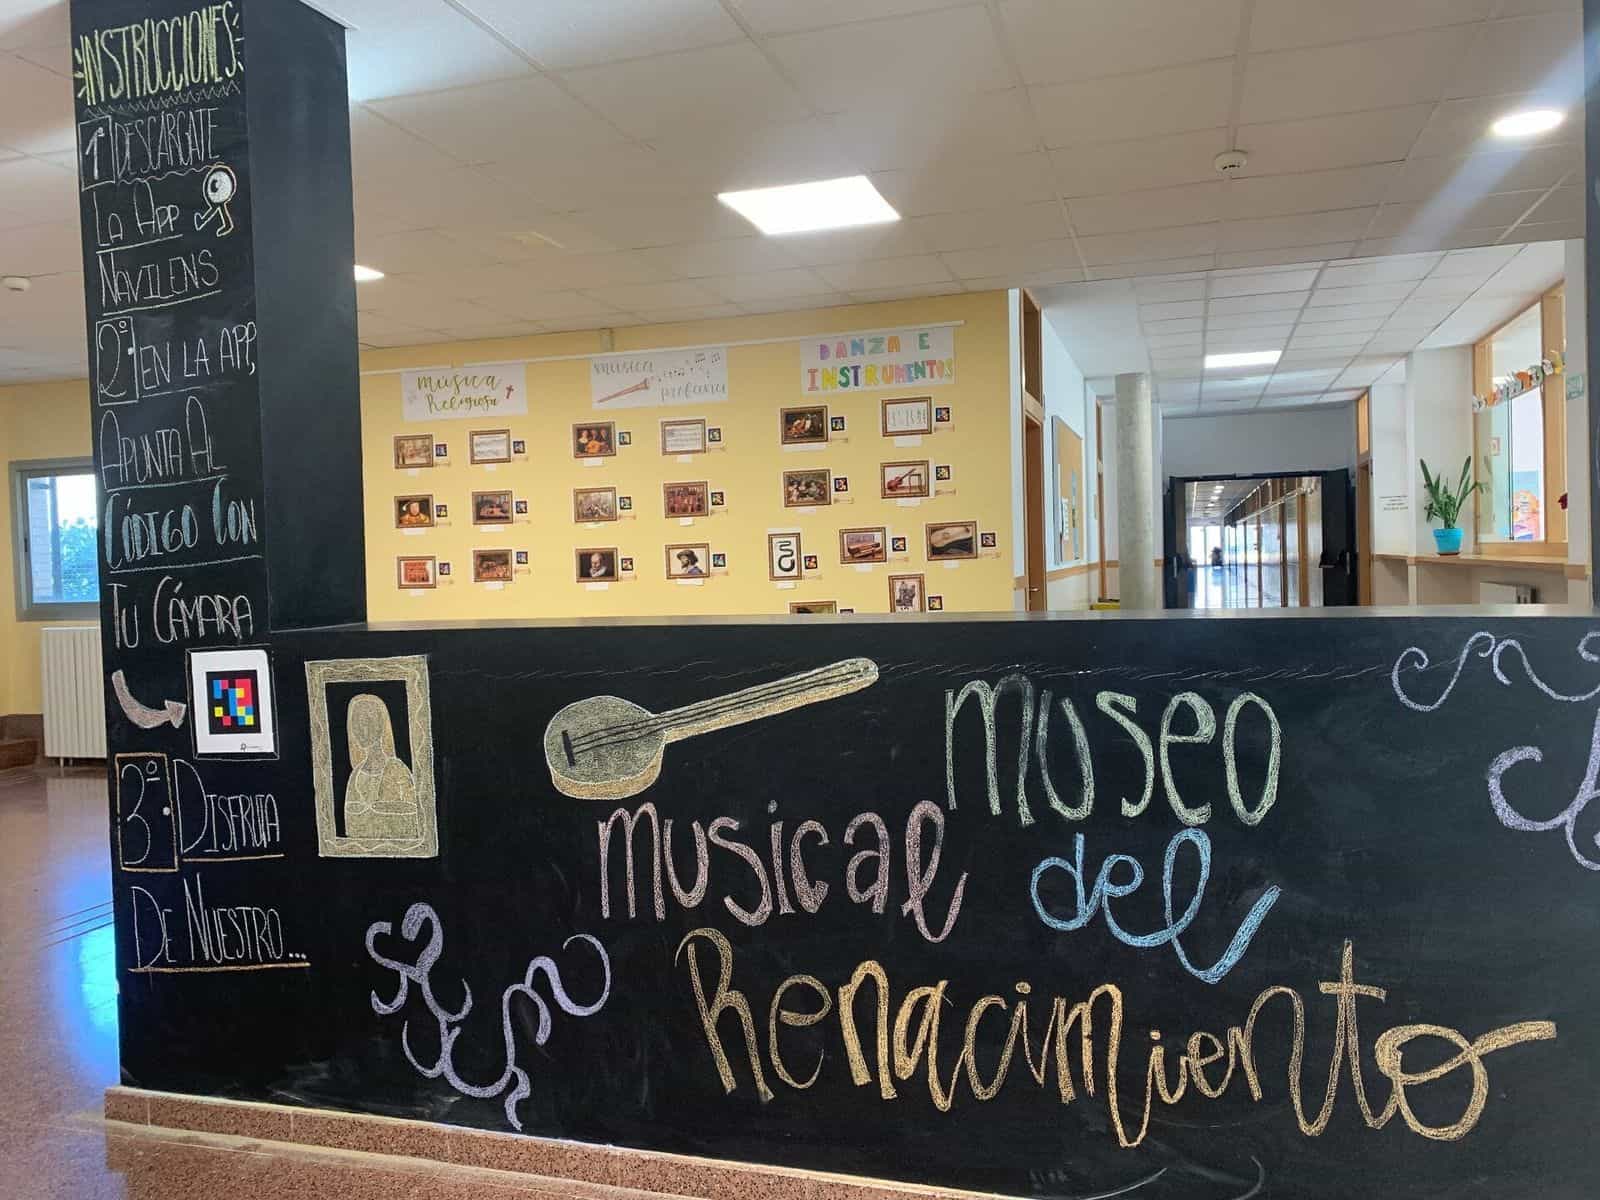 INSTRUCCIONES
1º DESCÁRGATE
LA APP
NAVILENS
2º EN LA APP,
APUNTA AL
CÓDIGO CON
TU CÁMARA
3º DISFRUTA
DE NUESTRO...
Música
Religiosa
música
profana
DANZA E
INSTRUMENTOS
museo
musical del
Renacimiento